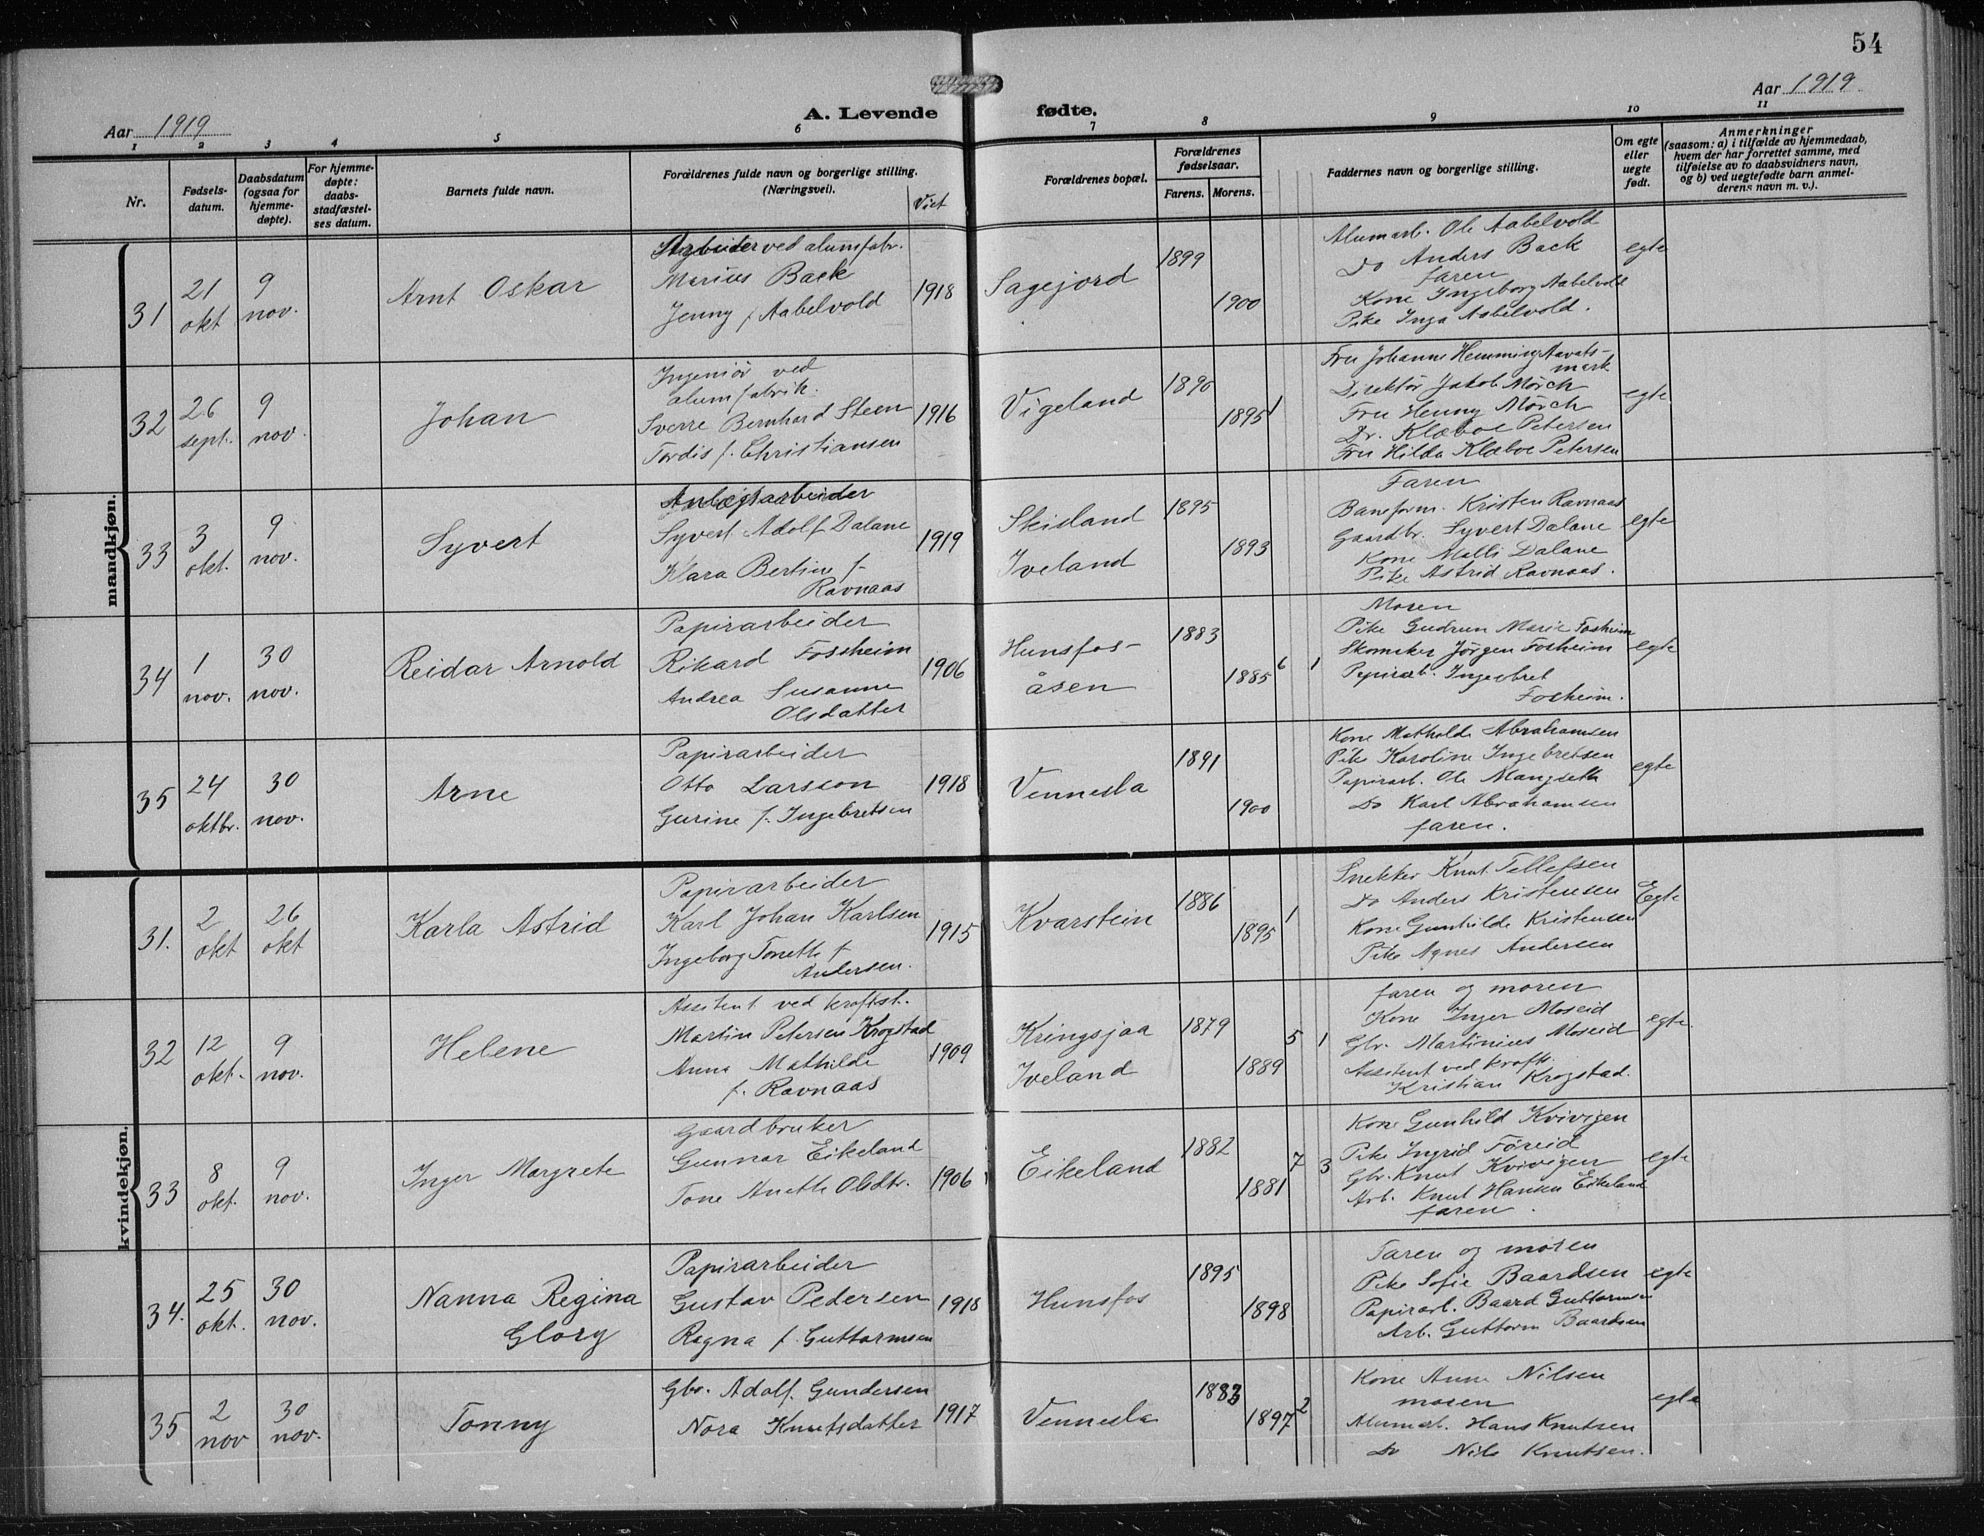 54
Aar 1919
A. Levende fødte.
Aar 1919
1 2 3 4 5 6 7 8 9 10 11
Nr.
Fødsels-
datum.
Daabsdatum
(ogsaa for
hjemme-
døpte).
For hjemme-
døpte:
daabs-
stadfæstel-
ses datum.
Barnets fulde navn.
Forældrenes fulde navn og borgerlige stilling.
(Næringsvei).
Viet
Forældrenes bopæl.
Forældrenes
fødselsaar.
Farens. Morens.
Faddernes navn og borgerlige stilling.
Om egte
eller
uegte
født.
Anmerkninger
(saasom: a) i tilfælde av hjemmedaab,
hvem der har forrettet samme, med
tilføielse av to daabsvidners navn,
og b) ved uegtefødte barn anmel-
derens navn m. v.).
mandkjøn.
31
21
okt
9
nov.
Arnt Oskar
Arbeider ved alumfabr.
Marius Back
Jenny f Aabelvold
1918
Sagejord
1899
1900
Alumarb. Ole Aabelvold
Do Anders Back
faren
Kone Ingeborg Aabelvold
Pike Inga Aabelvold.
egte
32
26
sept.
9
nov.
Johan
Ingeniør ved
alumfabrik.
Sverre Bernhard Steen
Tordis f. Christiansen
1916
Vigeland
1890
1895
1
Fru Johanne Hemming Aavats-
mark
Direktør Jakob Mørch
Fru Henny Mørch
Dr. Klæboe Petersen
Fru Hilda Klæboe Petersen
egte
33
3
okt.
9
nov.
Syvert
Anlægsarbeider
Syvert Adolf Dalane
Klara Bertine f
Ravnaas
1919
Skisland
Iveland
1895
1893
Faren
Baneform. Kristen Ravnaas
Gaardbr. Syvert Dalane
Kone Malli Dalane
Pike Astrid Ravnaas.
egte
34
1
nov.
30
nov.
Reidar Arnold
Papirarbeider
Rikard Fossheim
Andrea Susanne
Olsdatter
1906
Hunsfos-
åsen
1883
1885
6 1
Moren
Pike Gudrun Marie Fosheim
Skomaker Jørgen Fosheim
Papirarb. Ingebret
Fosheim.
egte
35
24
oktbr.
30
nov.
Arne
Papirarbeider
Otto Larsson
Gurine f. Ingebretsen
1918
Vennesla
1891
1900
Kone Matholde Abrahamsen
Pike Karoline Ingebretsen
Papirarb. Ole Mangseth
Do Karl Abrahamsen
faren.
egte
kvindekjøn.
31.
2
okt
26
okt
Karla Astrid
Papirarbeider
Karl Johan Karlsen
Ingeborg Tonette f
Andersen.
1915
Kvarstein
1886
1895
1
Snekker Knut Tellefsen
Do Anders Kristensen
Kone Gunhilde Kristensen
Pike Agnes Andersen
Egte
32
12
okt.
9
nov.
Helene
Assitent ved kraftst.
Martin Petersen Krogstad
Anna Mathilde
f. Ravnaas
1909
Kringsjaa
Iveland
1879
1889
5 1
faren og moren
Kone Inger Moseid
Gbr. Martinius Moseid
Assitent ved kraft.
Kristian Krogstad.
egte.
33
8
okt.
9
nov.
Inger Margrete
Gaardbruker
Gunnar Eikeland
Tone Anette Olsdtr.
1906
Eikeland
1882
1881
7 3
Kone Gunhild Kvivigen
Pike Ingrid Føreid
Gbr. Knut Kvivigen
Arb. Knut Hansen Eikeland
faren.
egte
34.
25
okt.
30
nov.
Nanna Regina
Glory
Papirarbeider
Gustav Pedersen
Ragna f. Guttormsen
1918
Hunsfos
1895
1898
Faren og moren
Pike Sofie Baardsen
Papirarb. Baard Guttormsen
Arb. Guttorm Baardsen
egte
35
2
nov
30
nov.
Tonny
Gbr. Adolf Gundersen
Nora Knutsdatter
1917
Vennesla
1883
1897
2
Kone Anna Nilsen
moren
Alumarb. Hans Knutsen
Do Nils Knutsen.
egte